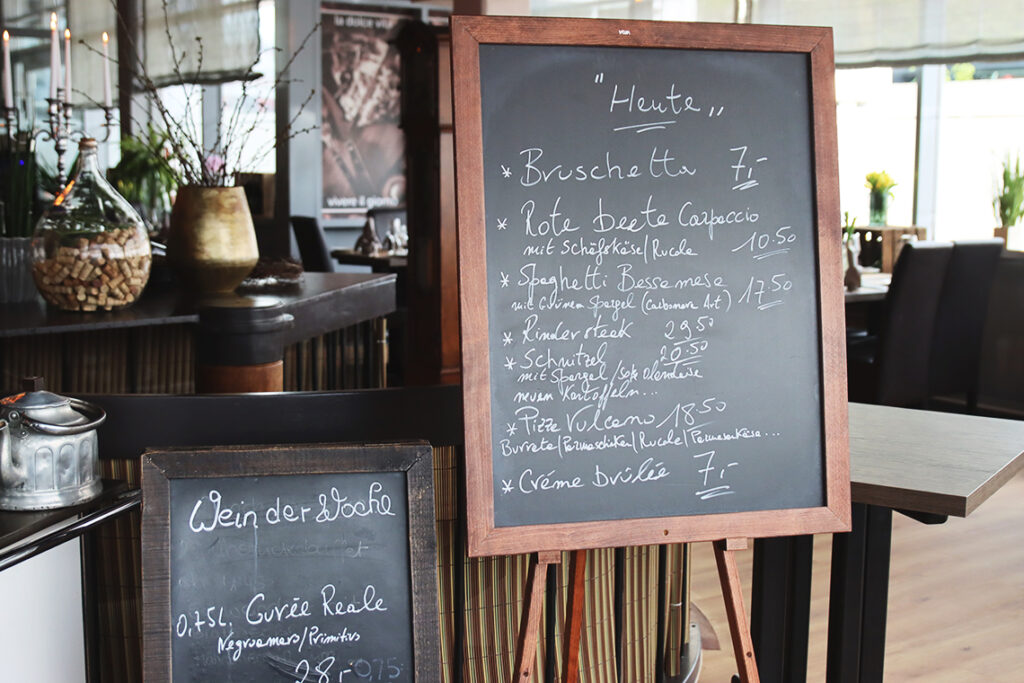 la dolce vita
vivere il giorno
"Heute"
* Bruschetta 7,-
* Rote beete Carpaccio
mit Schafskäse/Rucola 10.50
* Spaghetti Bessemese
mit Grünem Spargel (Carbonara Art) 17.50
* Rindersteak 29.50
* Schnitzel 20.50
mit Spargel/Soße Olendeise
neuen Kartoffeln...
* Pizza Vulcano 18.50
Burrata/Parmaschinken/Rucola/Parmesankäse...
* Créme Brûlée 7,-
Wein der Woche
0,75L. Cuvée Reale
Negroamaro/Primitivo
28,- 0,75